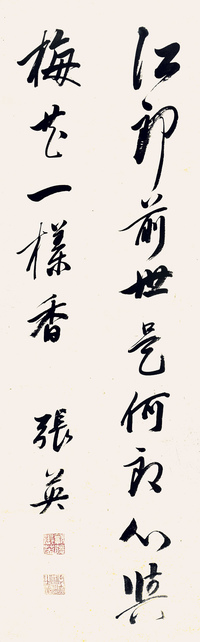 江郎前世是何郎心與
梅花一樣香 張英